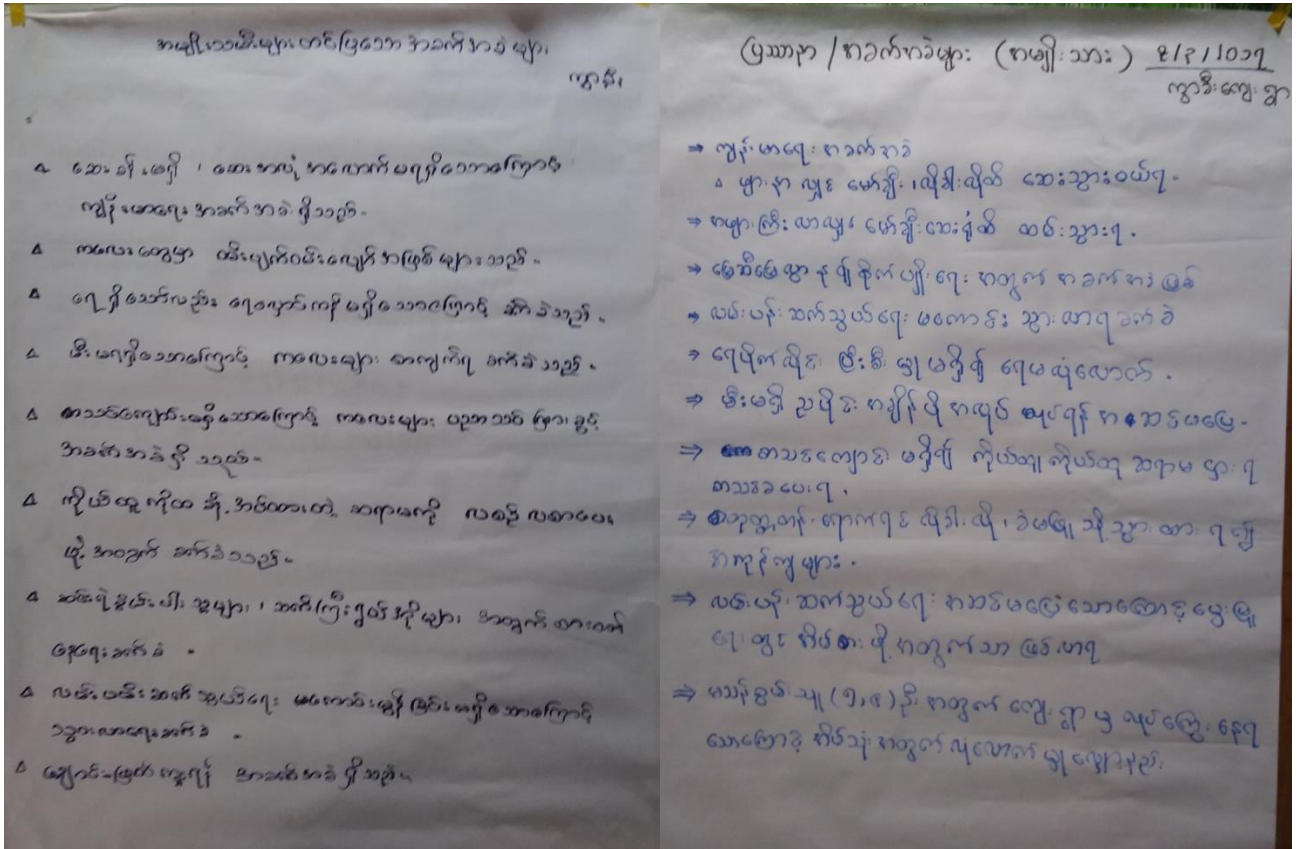 အမျိုးသမီးများတင်ပြသော အခက်အခဲများ
ကွာဒီး
ဆေးခန်းမရှိ၊ ဆေးအလုံအလောက်မရရှိသောကြောင့်
ကျန်းမာရေးအခက်အခဲရှိသည်။
ကလေးတွေမှာ ဝမ်းပျက်ဝမ်းလျှောအဖြစ်များသည်။
ရေရှိသော်လည်း ရေလှောင်ကန်မရှိသောကြောင့် ခက်ခဲသည်။
မီးမရရှိသောကြောင့် ကလေးများ စာကျက်ရ ခက်ခဲသည်။
စာသင်ကျောင်းမရှိသောကြောင့် ကလေးများ ပညာသင်ကြားခွင့်
အခက်အခဲရှိသည်။
ကိုယ်ထူကိုယ်ထ ဆရာမကို လစဉ်လစာပေး
ဖို့ အတွက် ခက်ခဲသည်။
ဆင်းရဲနွမ်းပါးသူများ၊ သက်ကြီးရွယ်အိုများ အတွက် စားဝတ်
နေရေးခက်ခဲ
လမ်းပမ်းဆက်သွယ်ရေး မကောင်းမွန်ခြင်းမရှိသောကြောင့်
သွားလာရေးခက်ခဲ
အခက်အခဲရှိသည်။
ပြဿနာ / အခက်အခဲများ (အမျိုးသား)
ကွာဒီးကျေးရွာ
⇒ ကျန်းမာရေး အခက်အခဲ
ဖျားနာလျှင် မော်ချီး၊ လိုဒါးလိုထိ ဆေးသွားဝယ်ရ။
⇒ အဖျားကြီးလာလျှင် မော်ချီးဆေးရုံထိ ထမ်းသွားရ။
⇒ မြေဆီမြေလွှာ စိုက်ပျိုးရေး အတွက် အခက်အခဲဖြစ်
⇒ လမ်းပန်းဆက်သွယ်ရေး မကောင်း သွားလာရခက်ခဲ
⇒ ရေပိုက်လိုင်း မှုမရှိ၍ ရေမလုံလောက်။
⇒ မီးမရှိ ညပိုင်းအချိန်ပို အလုပ် လုပ်ရန် အဆင်မပြေ။
⇒ စာသင်ကျောင်း မရှိ၍ ကိုယ်ထူကိုယ်ထ ဆရာမ ငှားရ
စာသင်ခပေးရ။
⇒ စတုတ္ထတန်းရောက်ရင် လိုဒါးလို၊ သို့သွားထားရ၍
အကုန်ကျများ။
⇒ လမ်းပန်းဆက်သွယ်ရေး အဆင်မပြေသောကြောင့် မွေးမြူ
ရေးတွင် အိမ်စားဖို့အတွက်သာ ဖြစ်လာရ
⇒ မသန်စွမ်းသူ ဦး အတွက် ကျေးရွာမှ လုပ်ကျွေးနေရ
သောကြောင့် အိမ်သုံးအတွက် လုံလောက်မှု